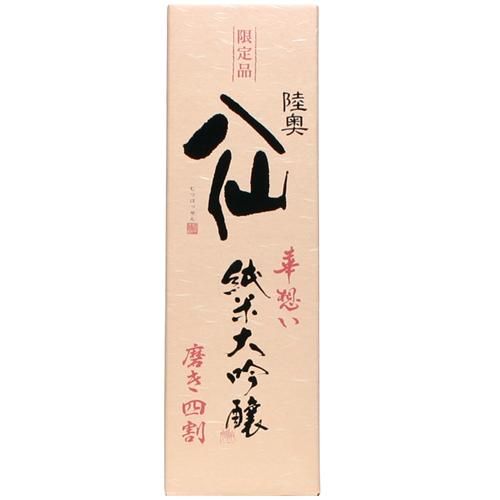 限定品
陸奥
八仙
むつはっせん
華想い
純米大吟醸
磨き四割